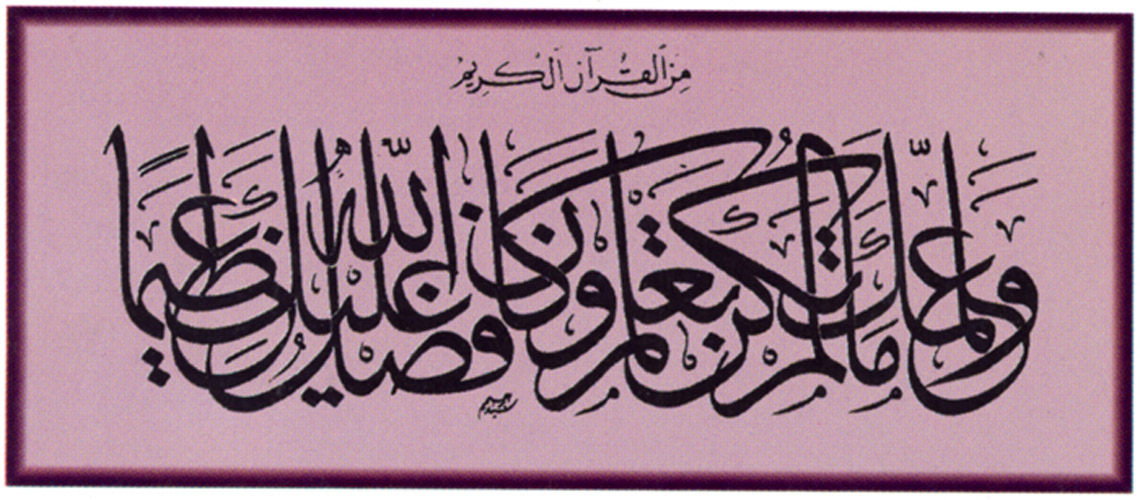 من القرآن الكريم
وعلمك ما لم تكن تعلم وكان فضل الله عليك عظيما